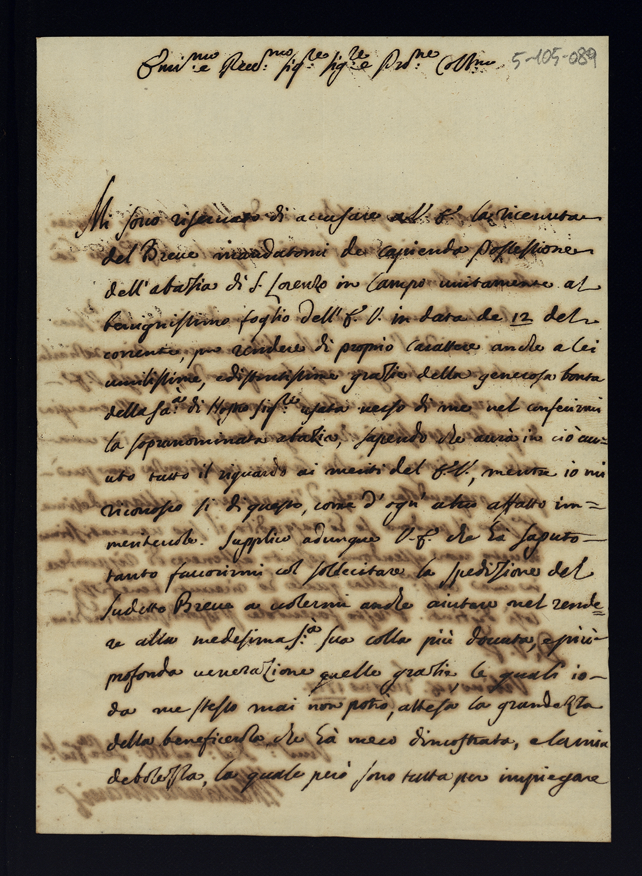 Emi.mo e Rev.mo Sig.re Sig.re e Pro.ne Coll.mo
5-105-089
Mi sono riservato di accusare a V. E. la ricevuta
del Breve mandatomi de capienda possessione
dell'abazia di S. Lorenzo in Campo unitamente al
benignissimo foglio dell'E. V. in data de 12 del
corrente, per rendere di proprio carattere anche a lei
umilissime, e distintissime grazie della generosa bontà
della San.tà di Nostro Sig.re usata verso di me nel conferirmi
la sopranominata abazia, sapendo che avrà in ciò av-
uto tutto il riguardo ai meriti del E. V., mentre io mi
riconosco sì di questo, come d'ogn'altro affatto im=
meritevole. Supplico adunque V. E. che ha saputo
tanto favorirmi col sollecitare la spedizione del
sudetto Breve a volermi anche aiutare nel rende=
re alla medesima S.tà sua colla più dovuta, e più
profonda venerazione quelle grazie le quali io
da me stesso mai non potrò, attesa la grandezza
della beneficenza che ha meco dimostrata, e la mia
debolezza, la quale però sono tutta per impiegare